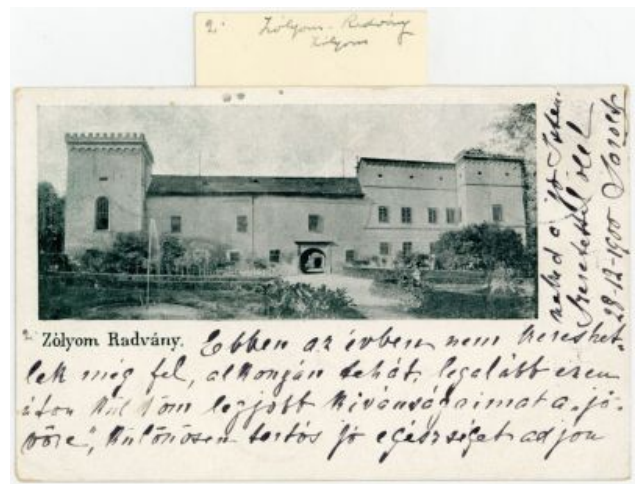 2.
Zólyom-Radvány
Zólyom
Zólyom Radvány.
Ebben az évben nem kereshet-
lek még fel, alkonyán tehát, legalább ezen
úton küldöm legjobb kivánságaimat a „jö-
vőre", különösen tartós jó egészséget adjon
neked a jó Isten.
Szeretettel ölel
28-12-1900